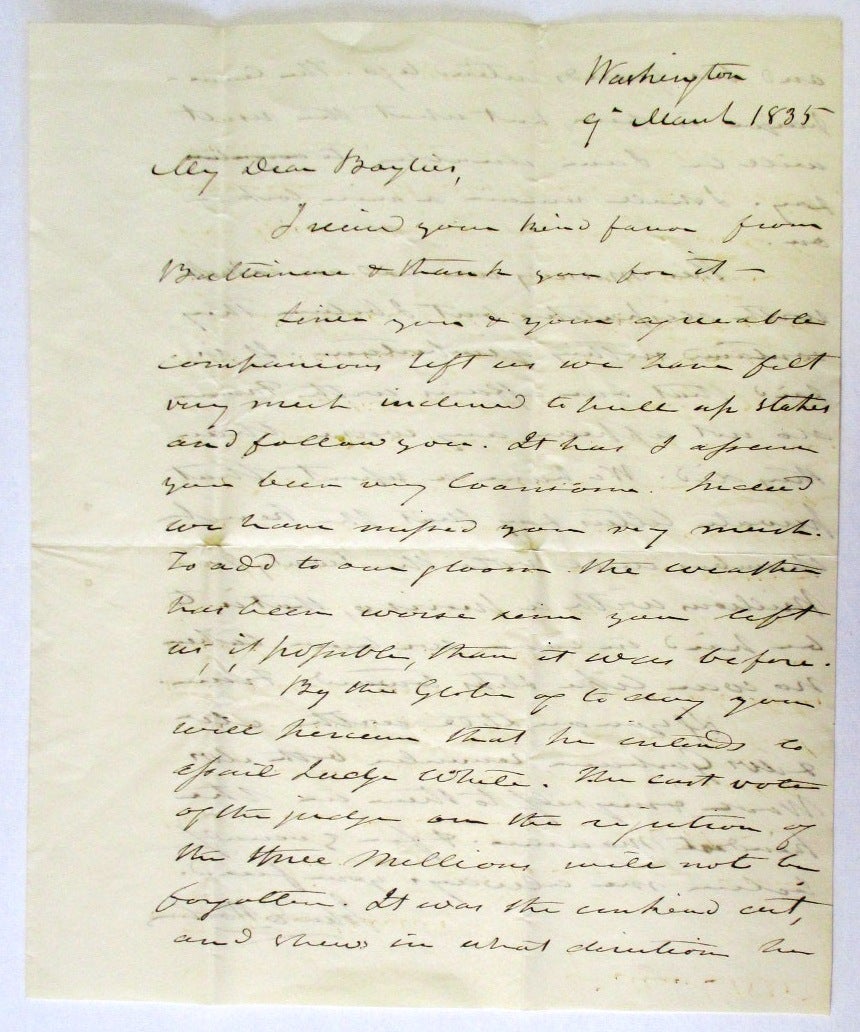 Washington
9th March 1835
My Dear Baylies,
I recied your kind favor from
Baltimore & thank you for it —
Since you & your agreeable
companions left us we have felt
very much inclined to pull up stakes
and follow you. It has I assure
you been very loansome. Indeed
we have missed you very much.
To add to our gloom the weather
has been worse since you left
us, if possible, than it was before.
By the Globe of to day you
will perceive that he intends to
assail Judge White. The last vote
of the judge on the rejection of
the three Millions will not be
forgotten. It was the unkind cut,
and shews in what direction he